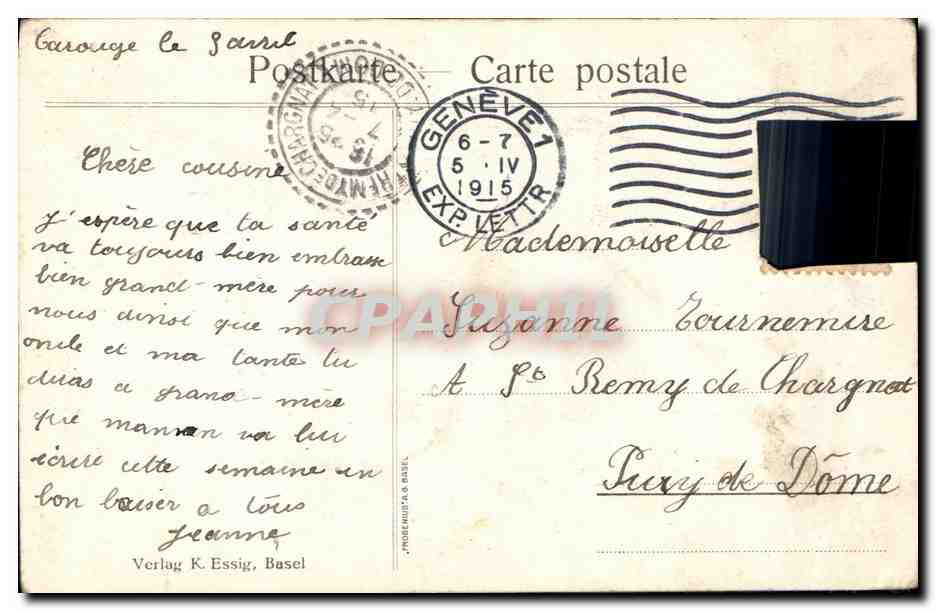 Carouge le 5 avril
Postkarte — Carte postale
GENÈVE 1
6-7
5 . IV
1915
EXP. LETTR.
Chère cousine
J'espère que ta santé
va toujours bien embrasse
bien grand-mère pour
nous ainsi que mon
oncle et ma tante tu
diras a grand-mère
que maman va lui
écrire cette semaine un
bon baiser a tous
Jeanne
Verlag K. Essig, Basel
"FROBENIUS" A.G. BASEL
Mademoiselle
Suzanne Tournemire
A St Remy de Chargnat
Puiy de Dôme
CPAPHIL